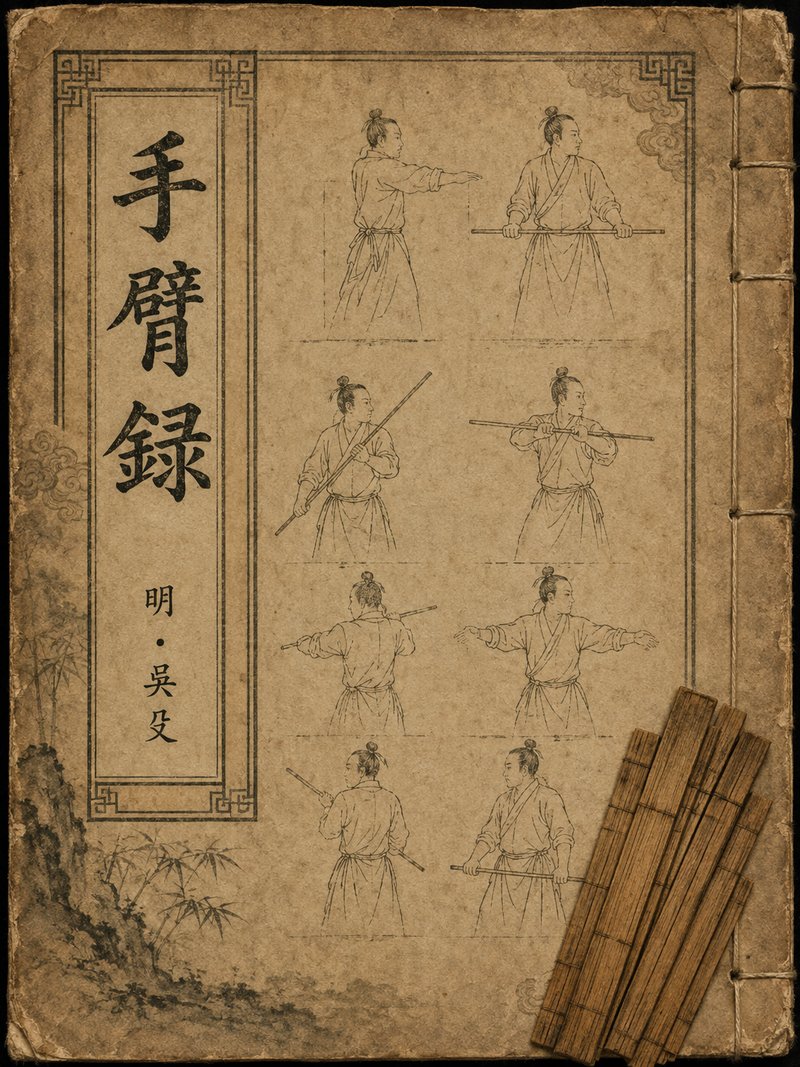 手臂録
明・吳殳